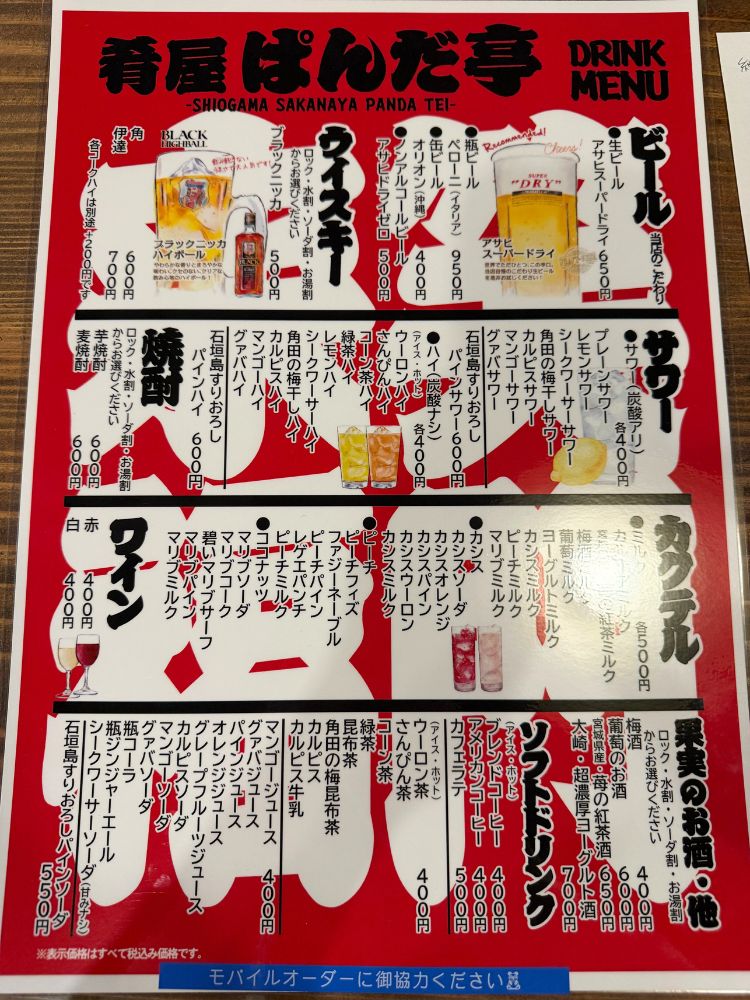 肴屋 ぱんだ亭
-SHIOGAMA SAKANAYA PANDA TEI-
DRINK
MENU
ビール
当店のこだわり
●生ビール
アサヒスーパードライ 650円
Recommended!
Cheers!
SUPER
"DRY"
アサヒ
スーパードライ
世界でただひとつ、この辛口。
●瓶ビール
ペローニ(イタリア) 950円
●缶ビール
オリオン(沖縄) 400円
●ノンアルコールビール
アサヒドライゼロ 500円
ウイスキー
ロック・水割・ソーダ割・お湯割
からお選びください
ブラックニッカ 500円
BLACK
HIGHBALL
ブラックニッカ
ハイボール
角 600円
伊達 700円
各コークハイは別途+200円です
サワー
●サワー(炭酸アリ) 各400円
プレーンサワー
レモンサワー
シークワーサーサワー
角田の梅干しサワー
カルピスサワー
マンゴーサワー
グァバサワー
石垣島すりおろし
パインサワー 600円
●ハイ(炭酸ナシ) 各400円
(アイス・ホット)
ウーロンハイ
さんぴんハイ
コーン茶ハイ
緑茶ハイ
レモンハイ
シークワーサーハイ
角田の梅干しハイ
カルピスハイ
マンゴーハイ
グァバハイ
石垣島すりおろし
パインハイ 600円
焼酎
ロック・水割・ソーダ割・お湯割
からお選びください
芋焼酎 600円
麦焼酎 600円
カクテル
各500円
●ミルク
梅酒ミルク
葡萄ミルク
ヨーグルトミルク
カシスミルク
ピーチミルク
マリブミルク
●カシス
カシスソーダ
カシスオレンジ
カシスパイン
カシスウーロン
カシスミルク
●ピーチ
ピーチフィズ
ファジーネーブル
ピーチパイン
レゲエパンチ
ピーチミルク
●ココナッツ
マリブソーダ
マリブコーク
碧いマリブサーフ
マリブパイン
マリブミルク
ワイン
赤 400円
白 400円
果実のお酒・他
ロック・水割・ソーダ割・お湯割
からお選びください
梅酒 400円
葡萄のお酒 600円
宮城県産・苺の紅茶酒 650円
大崎・超濃厚ヨーグルト酒 700円
ソフトドリンク
(アイス・ホット)
ブレンドコーヒー 400円
アメリカンコーヒー 400円
カフェラテ 500円
(アイス・ホット)
ウーロン茶 400円
さんぴん茶
コーン茶
緑茶
昆布茶
角田の梅昆布茶
カルピス
カルピス牛乳
マンゴージュース 400円
グァバジュース
パインジュース
オレンジジュース
グレープフルーツジュース
カルピスソーダ
マンゴーソーダ
グァバソーダ
瓶コーラ
瓶ジンジャーエール
シークワーサーソーダ(甘みナシ)
石垣島すりおろしパインソーダ 550円
※表示価格はすべて税込み価格です。
モバイルオーダーに御協力ください